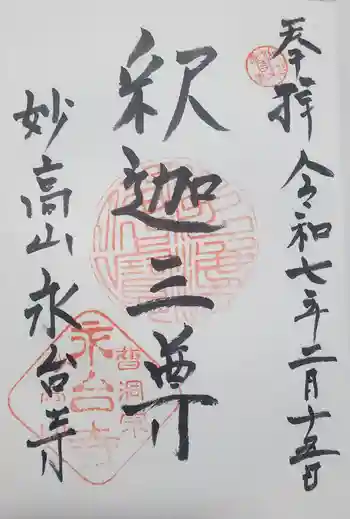 奉拝 令和七年二月十五日
釈迦三尊
妙高山 永台寺
曹洞宗
永台寺